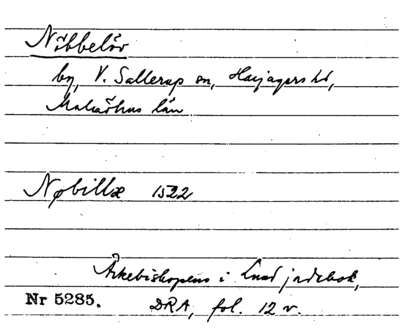 Nöbbelöv
by, V. Sallerup sn, Harjagers hd,
Malmöhus län
Nøbilløe 1522
Ärkebiskopens i Lund jordebok,
Nr 5285. DRA, fol. 12 v.